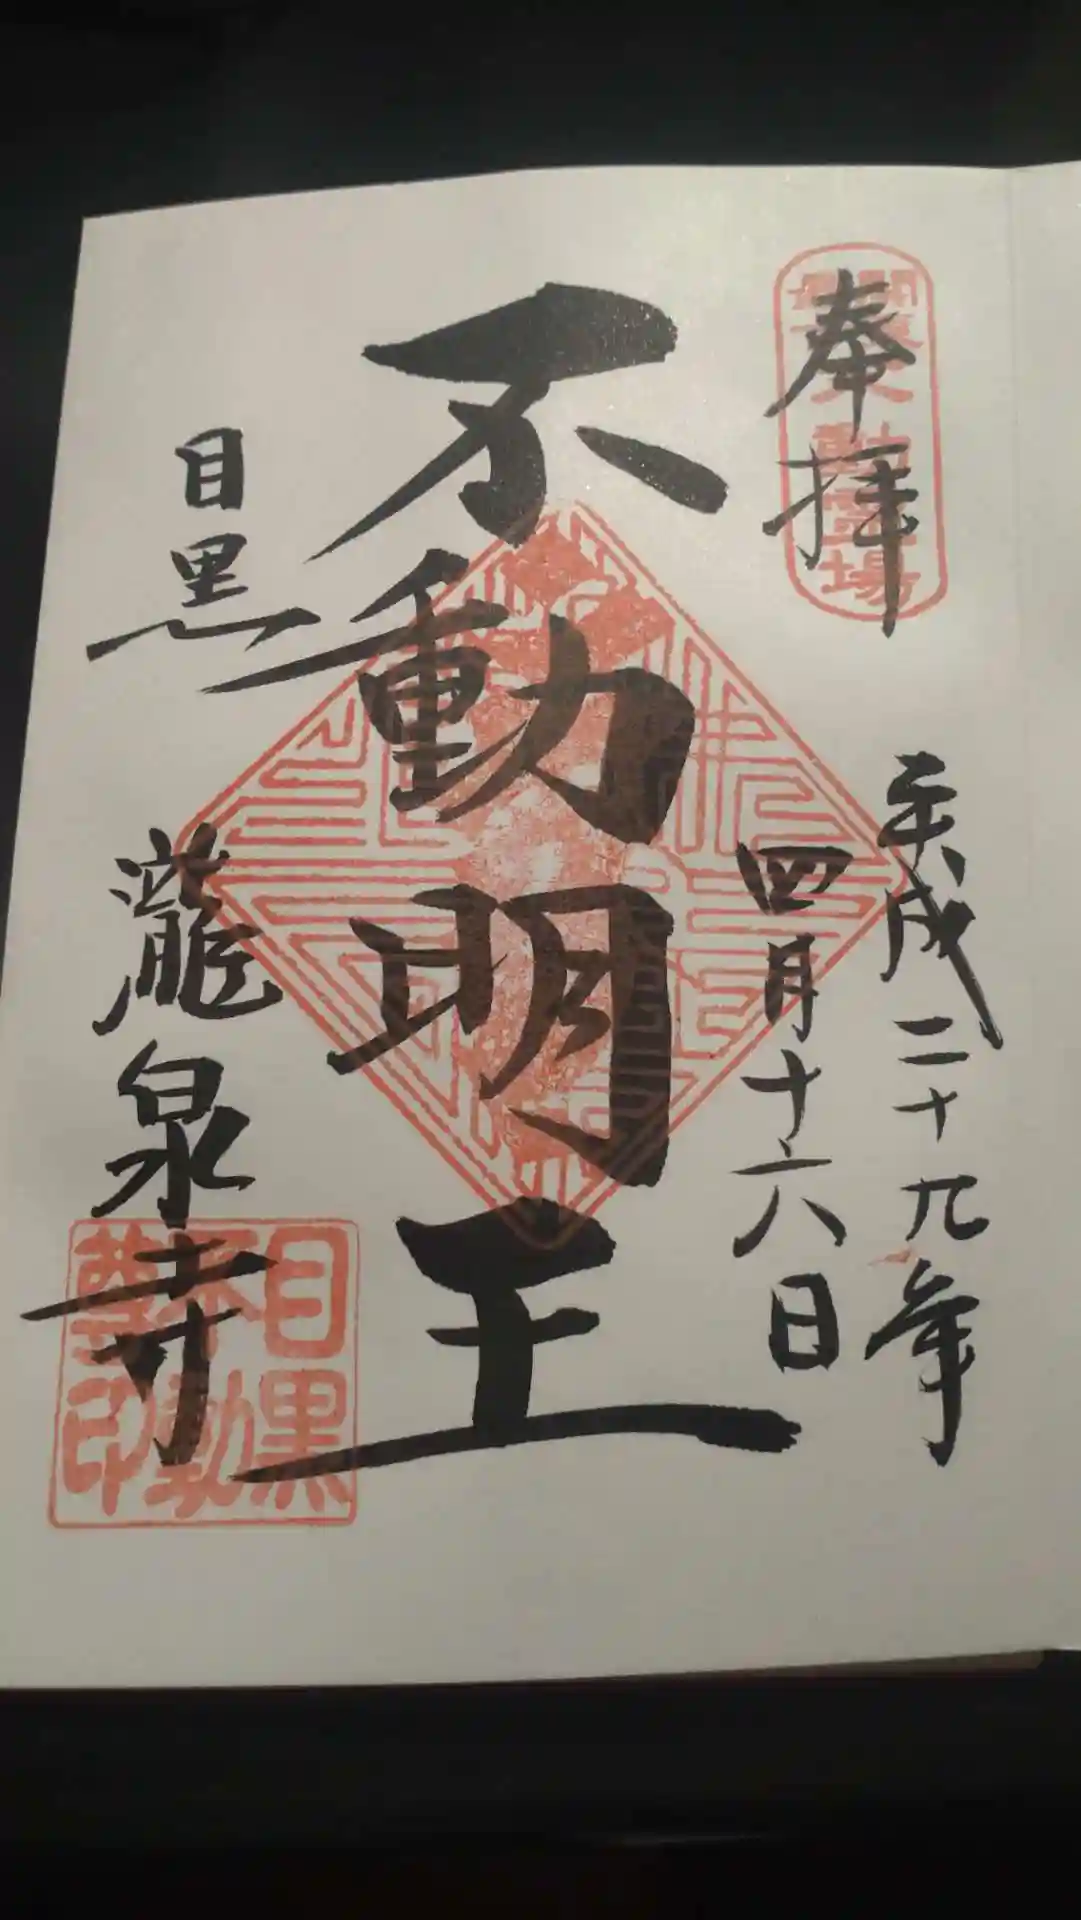 奉拝
平成二十九年
四月十六日
不動明王
目黒
瀧泉寺
関東最古不動霊場
目黒
不動
尊印